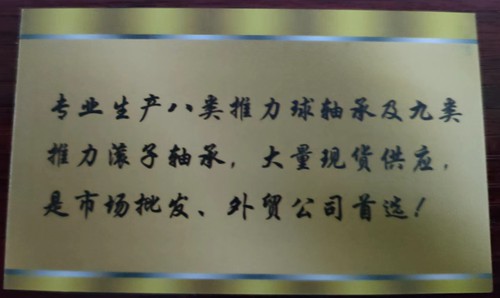 专业生产八类推力球轴承及九类
推力滚子轴承，大量现货供应，
是市场批发、外贸公司首选！